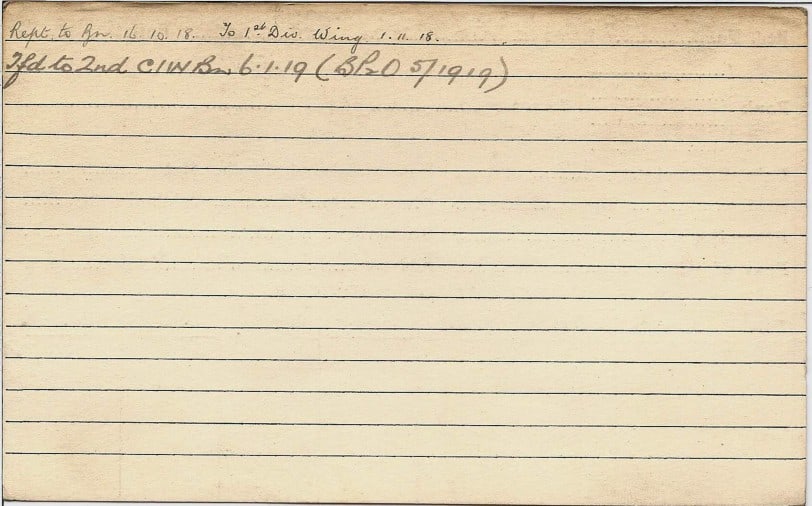 Rept. to Bn. 16.10.18. To 1st Div. Wing 1.11.18.
Tfd to 2nd CIW Bn. 6.1.19 (BRO 5/1919)